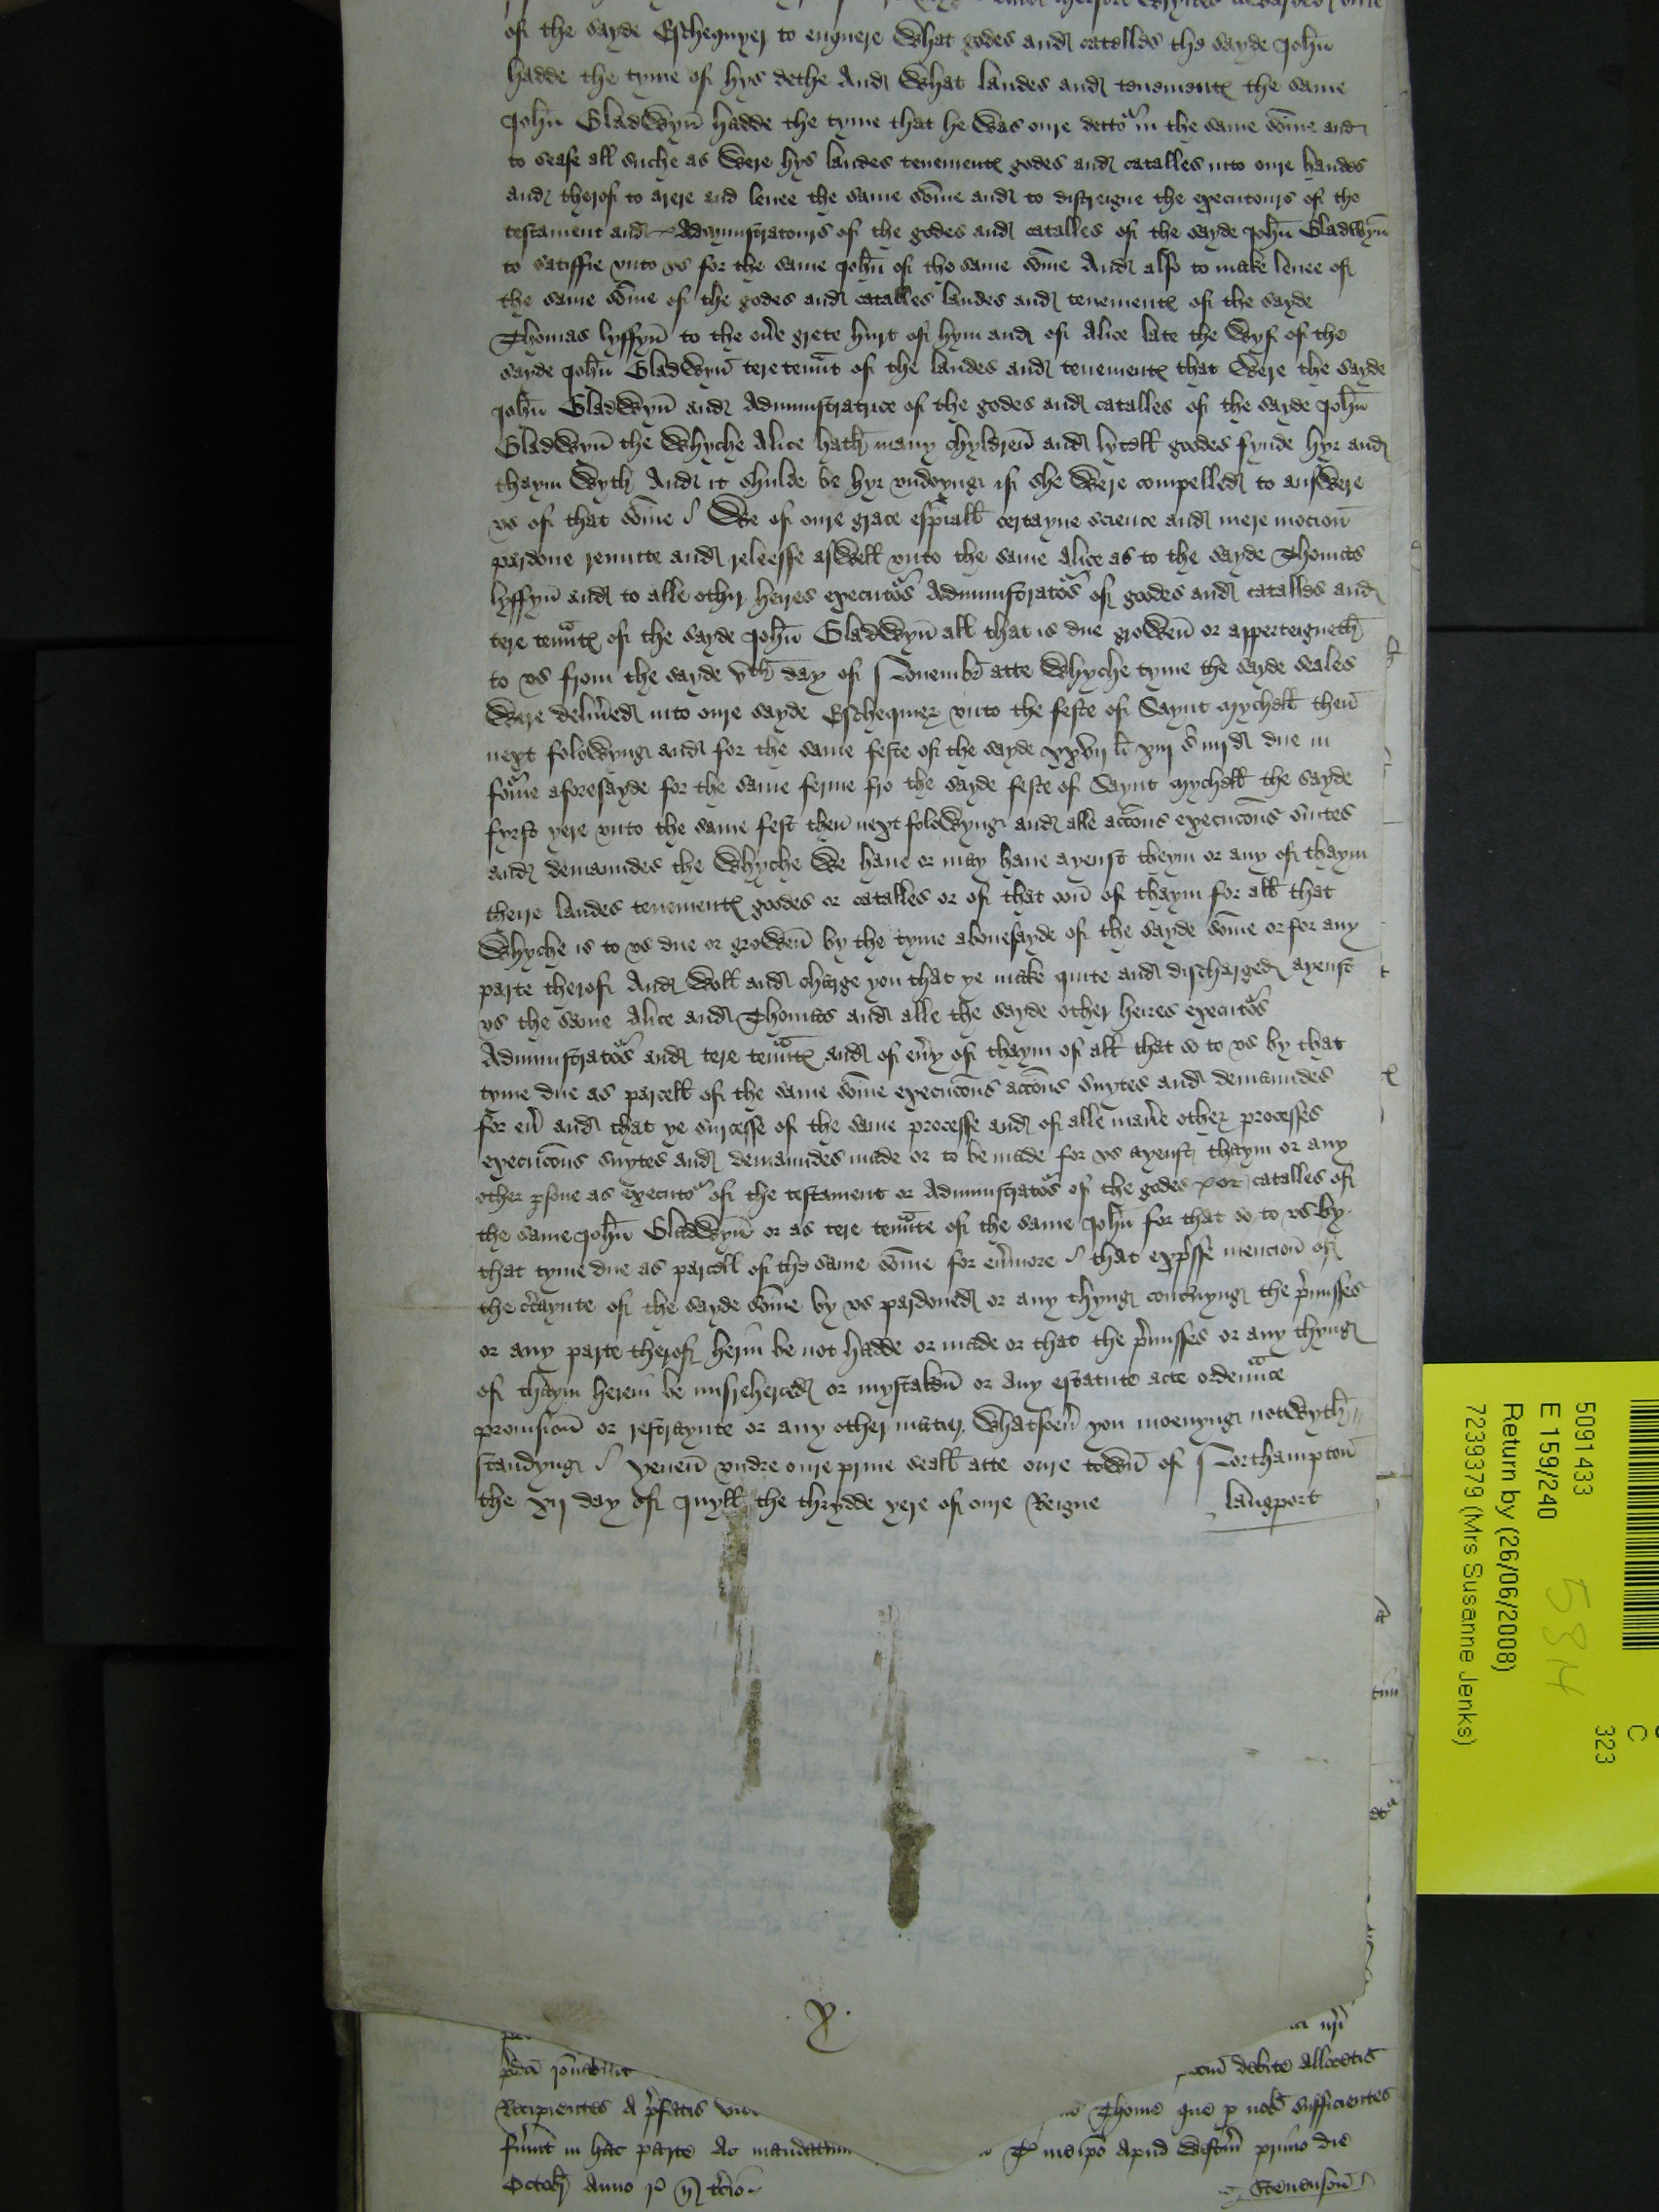 of the sayde Eschequyer to enquere What godes and catelles the sayde John̄
hadde the tyme of hys dethe And What landes and tenementꝭ the same
John̄ Gladwyn̄ hadde the tyme that he Was oure dettoʳ in the same som̄e and
to sease all suche as Were hys landes tenementꝭ godes and catalles into oure handes
and therof to arere and leuee the same som̄e and to distreigne the executours of the
testament and Admynistratours of the godes and catalles of the sayde John̄ Gladwyn̄
to satisffie vnto vs for the same John̄ of the same som̄e And also to make leuee of
the same som̄e of the godes and catalles landes and tenementꝭ of the sayde
Thomas lyffyn̄ to the ou̾e grete hurt of hym and of Alice late the Wyf of the
sayde John̄ Gladwyn̄ tere tenᵃunt of the landes and tenementꝭ that Were the sayde
John̄ Gladwyn̄ and Administratrice of the godes and catalles of the sayde John̄
Gladwyn̄ the Whyche Alice hath many chyldren̄ and lytell goodes fynde hyr and
thaym Wyth And it shulde be hyr vndoyng if she Were compelled to ansWere
vs of that som̄e / We of oure grace esp̄iall certayne science and mere mocion̄
pardone remitte and releesse asWell vnto the same Alice as to the sayde Thomas
lyffyn̄ and to alle othyr heires executoʳs Administratoʳs of goodes and catalles and
tere tenᵃuntꝭ of the sayde John̄ Gladwyn̄ all that is due groWen̄ or apperteigneth
to vs from the sayde vᵗʰ day of Nouembr̄ atte Whyche tyme the sayde seales
Were deliu̾ed into oure sayde Eschequier vnto the feste of Saynt Mychell then̄
next foloWyng and for the same feste of the sayde xxvij li xiij s̄ iiij d due in
foʳme aforesayde for the same ferme fro the sayde feste of Saynt Mychell the sayde
fyrst yere vnto the same fest then̄ next foloWyng and alle acc̄ons execuc̄ons suites
and demaundes the Whyche We haue or may haue ayenst theym or any of thaym
theire landes tenementꝭ goodes or catalles or of that oon̄ of thaym for all that
Whyche is to vs due or groWen̄ by the tyme abouesayde of the sayde som̄e or for any
parte therof And Woll and charge you that ye make quite and discharged ayenst
vs the same Alice and Thomas and alle the sayde other heires executoʳs
Administratoʳs and tere tenᵃuntꝭ and of eu̾y of thaym of all that so to vs by that
tyme due as parcell of the same som̄e execuc̄ons acc̄ons suytes and demaundes
for eu̾ and that ye surcesse of the same processe and of alle man̾e other processes
execuc̄ons suytes and demaundes made or to be made for vs ayenst thaym or any
other ꝑsone as executoʳ of the testament or Administratoʳs of the godes or catalles of
the same John̄ Gladwyn̄ or as tere tenᵃunte of the same John̄ for that so to vs by
that tyme due as parcell of the same som̄e for eu̾more / that exp̾sse mencion̄ of
the c̾taynte of the sayde som̄e by vs pardoned or any thyng conc̾nyng the p̾misses
or any parte therof herin be not hadde or made or that the p̾misses or any thyng
of thaym herein be misreherced or mystaken̄ or any estatute acte ordenᵃunce
prouision̄ or restraynte or any other matier Whatsoeu̾ you moeuyng notWyth
standyng / yeuen̄ vndre oure priue seall atte oure toWn̄ of Northampton̄
the xij day of Juyll the thrydde yere of oure Reigne langport
X.
Recipientes A p̾fatis Thome que ꝑ nob̄ sufficientes
fu̾int in hac parte Ac mandatum T̾ me ip̄o Apud Westm̄ primo die
Octobr̄ Anno r̄ n̄ t̾cio Steuenson̄
5091433
E 159/240
Return by (26/06/2008)
7239379 (Mrs Susanne Jenks)
C
323